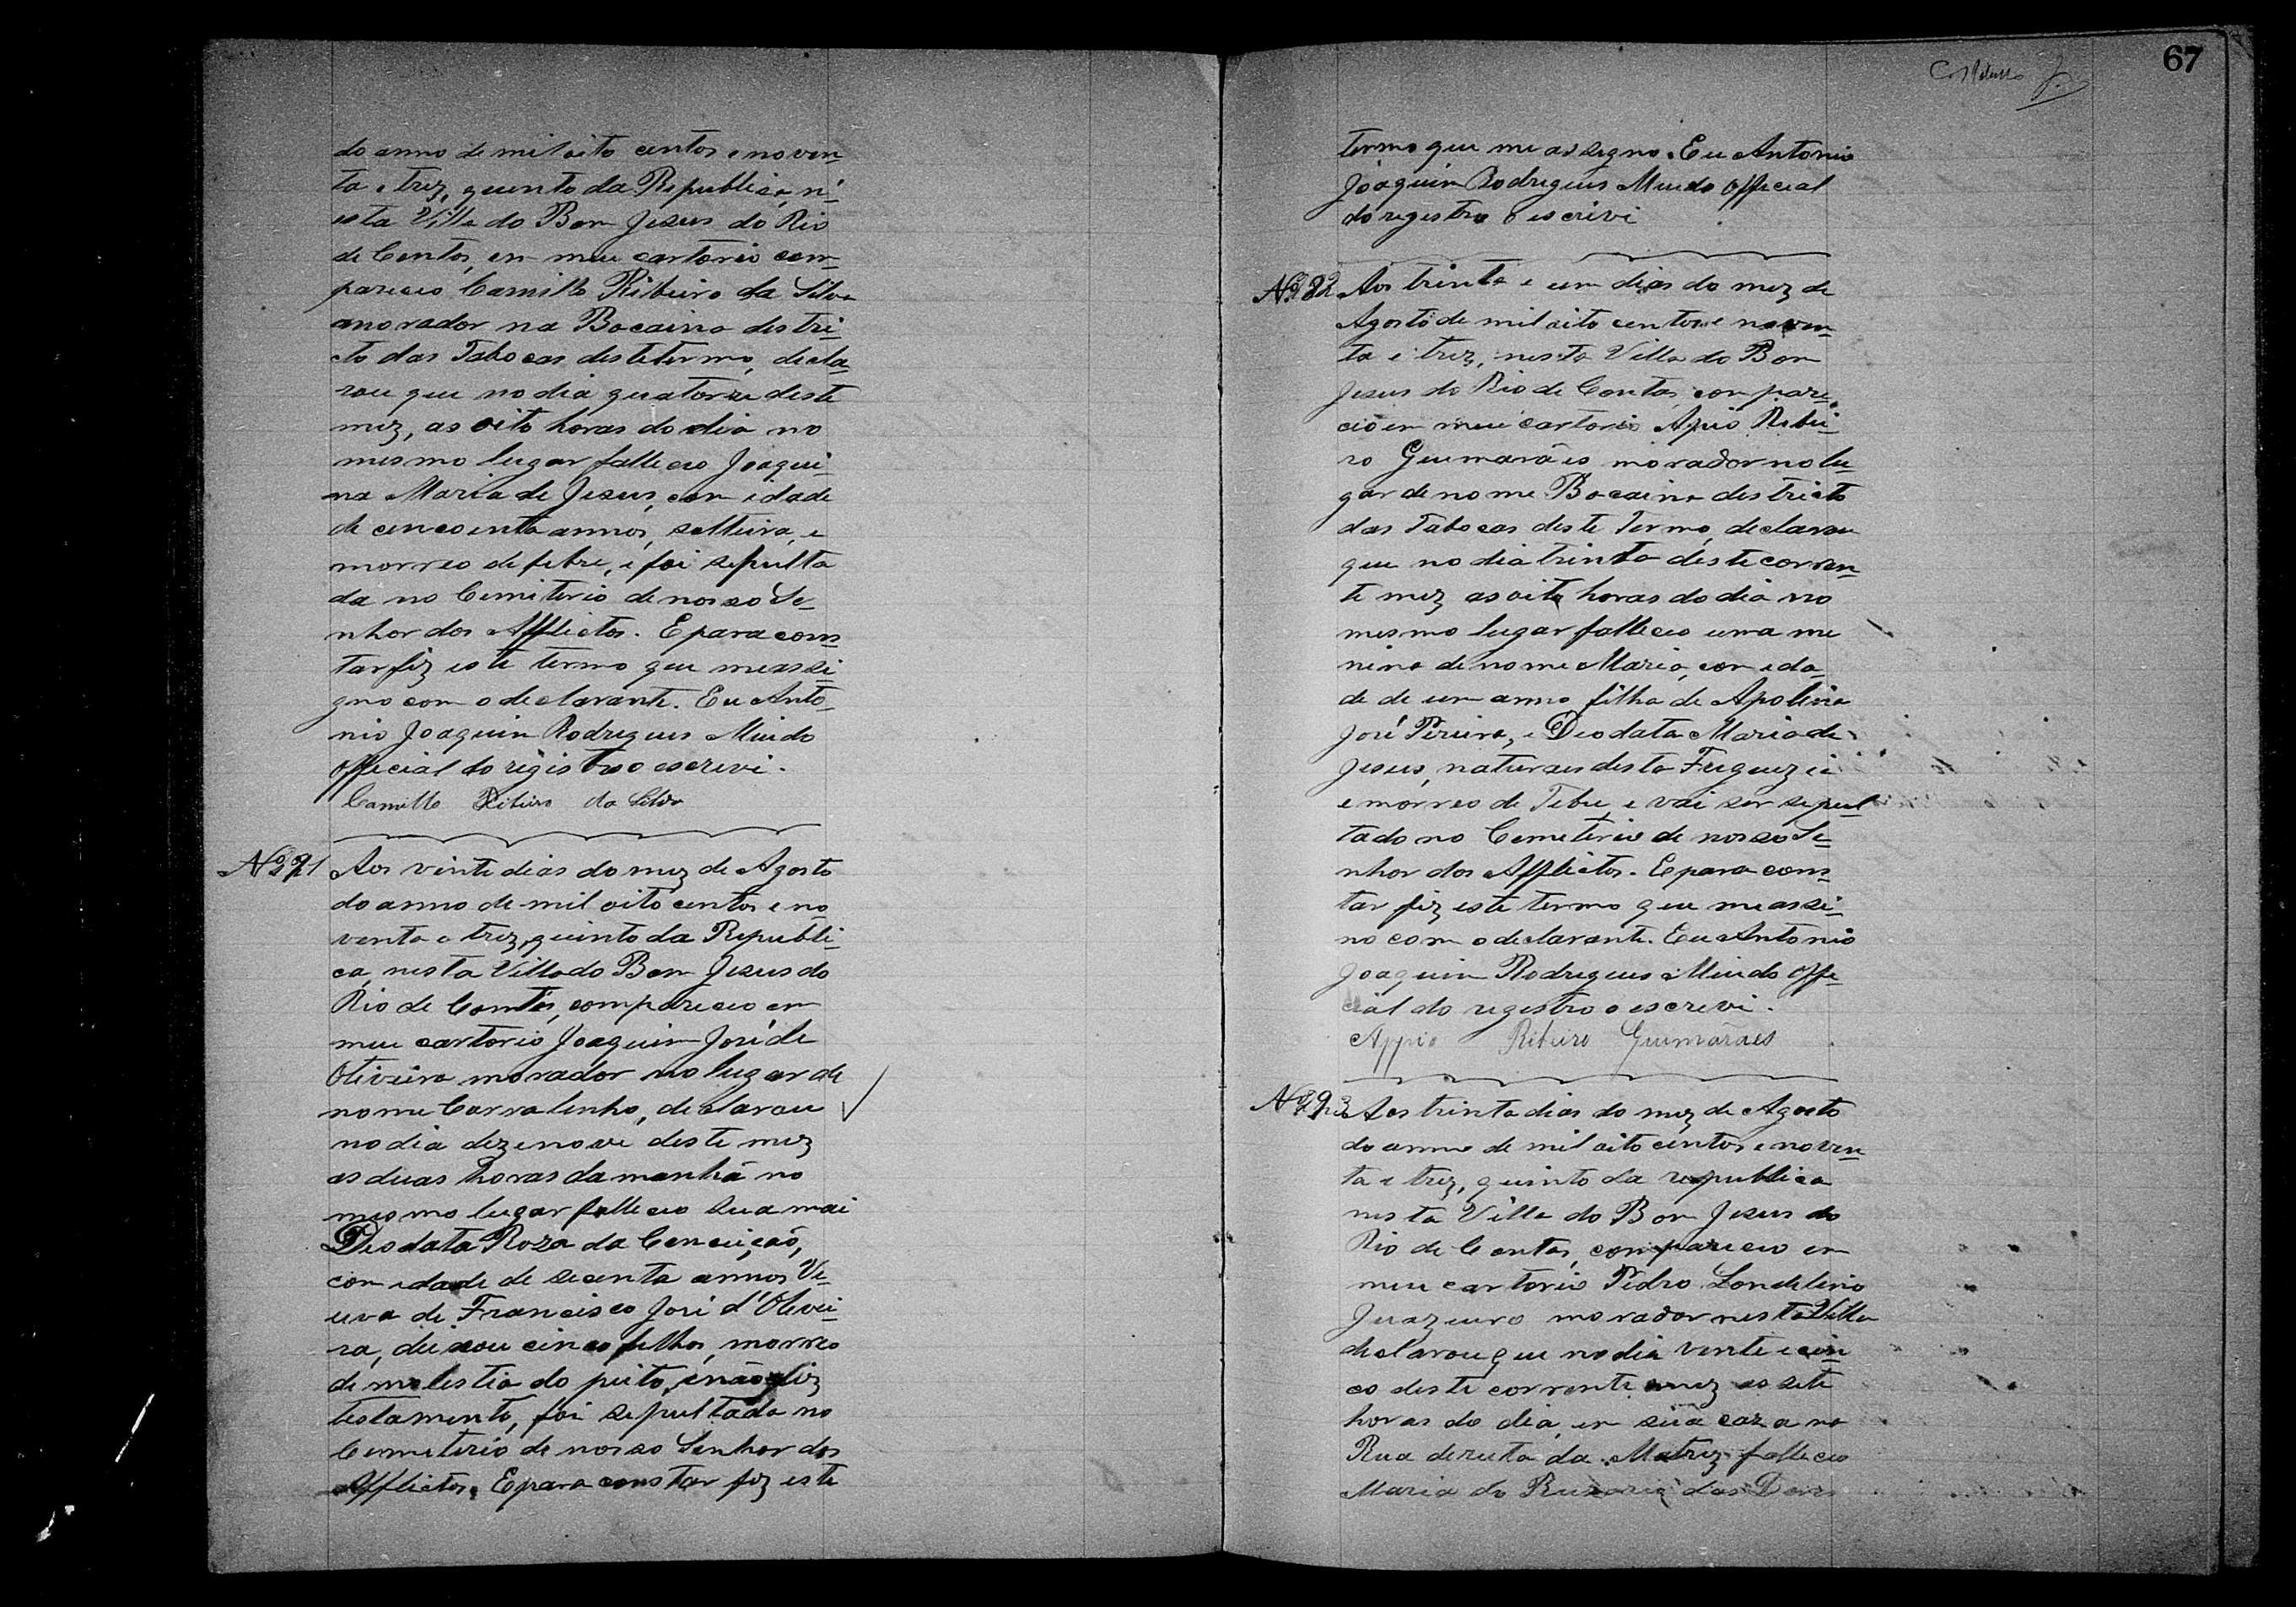 do anno de mil oito centos e noven
ta e trez, quinto da Republica, n'
esta Villa do Bom Jesus do Rio
de Contas, em meu cartorio com
pareceo Camillo Ribeiro da Silva
morador na Bocaina destri
cto das Tabocas deste termo, decla
rou que no dia quatorze deste
mez, as oito horas do dia no
mesmo lugar falleceo Joaqui
na Maria de Jesus, com idade
de cencoenta annos, solteira, e
morreo de febre, e foi sepulta
da no Cemiterio de nosso Se
nhor dos Afflictos. E para cons
tar fiz este termo que me assi
gno com o declarante. Eu Anto
nio Joaquim Rodrigues Muido
official do registro o escrevi.
Camillo Ribeiro da Silva
Nº 291 Aos vinte dias do mez de Agosto
do anno de mil oito centos e no
venta e trez, quinto da Republi
ca, nesta Villa do Bom Jesus do
Rio de Contas, compareceo em
meu cartorio Joaquim José de
Oliveira morador no lugar de
nome Carralinho, declarou
no dia dezenove deste mez
as duas horas da manhã no
mesmo lugar falleceo sua mai
Deodata Roza da Conceição,
com idade de secenta annos Vi
uva de Francisco José d'Olivei
ra, deixou cinco filhos, morreo
de molestia do peito, e não fez
testamento, foi sepultada no
Cemeterio de nosso Senhor dos
Afflictos. E para constar fiz este
67
termo que me assegno. Eu Antonio
Joaquim Rodrigues Muido official
do registro o escrivi
Nº 292 Aos trinta e um dias do mez de
Agosto de mil oito centos e noven
ta e trez, nesta Villa do Bom
Jesus do Rio de Contas, compare
ceo em meu cartorio Apio Ribei
ro Guimarães morador no lu
gar de nome Bocaina destricto
das Tabocas deste Termo, declarou
que no dia trinta deste corren
te mez as oito horas do dia no
mesmo lugar falleceo uma me
nina de nome Maria, com eda
de de um anno filha de Apolina
José Pereira, e Deodata Maria de
Jesus, naturaes desta Freguezia
e morreo de Febre e vai ser sepul
tado no Cemeterio de nosso Se
nhor dos Afflictos. E para cons
tar fiz este termo que me assi
no com o declarante. Eu Antonio
Joaquim Rodrigues Muido offi
cial do registro o escrevi.
Appio Ribeiro Guimarães
Nº 293 Aos trinta dias do mez de Agosto
do anno de mil oito centos e noven
ta e trez, quinto da republica
nesta Villa do Bom Jesus do
Rio de Contas, compareceo em
meu cartorio Pedro
Juazeiro morador nesta Villa
declarou que no dia vente e cin
co deste corrente mez as sete
horas do dia, em sua caza na
Rua dereita da Matriz falleceo
Maria do Ruzario das